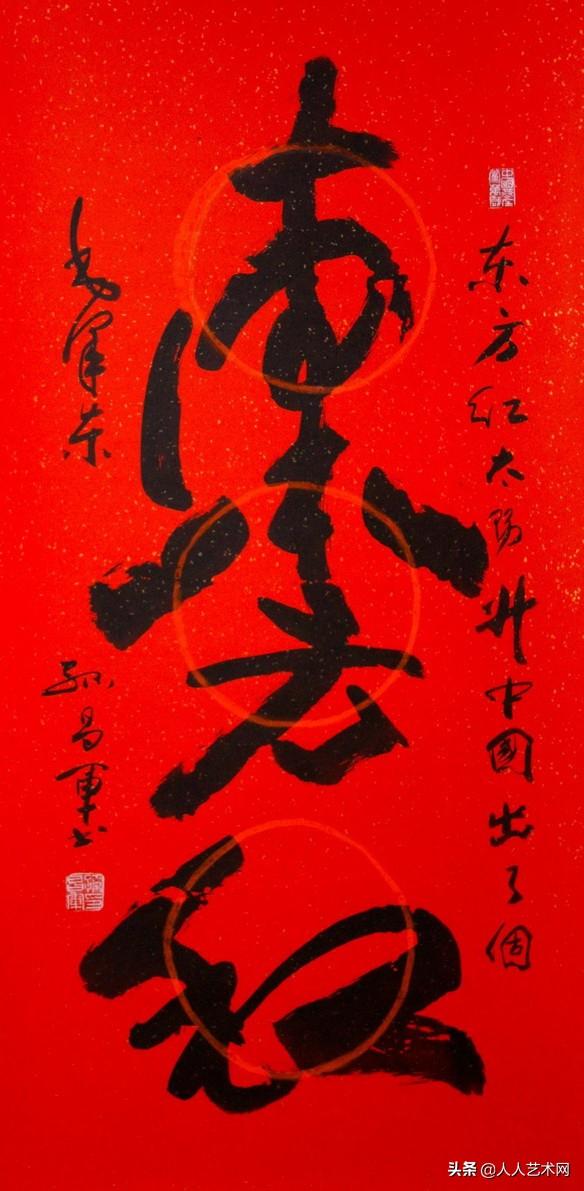 东方红太陽升中國出了個
東方红
毛泽东
孙昌軍书
头条 @人人艺术网